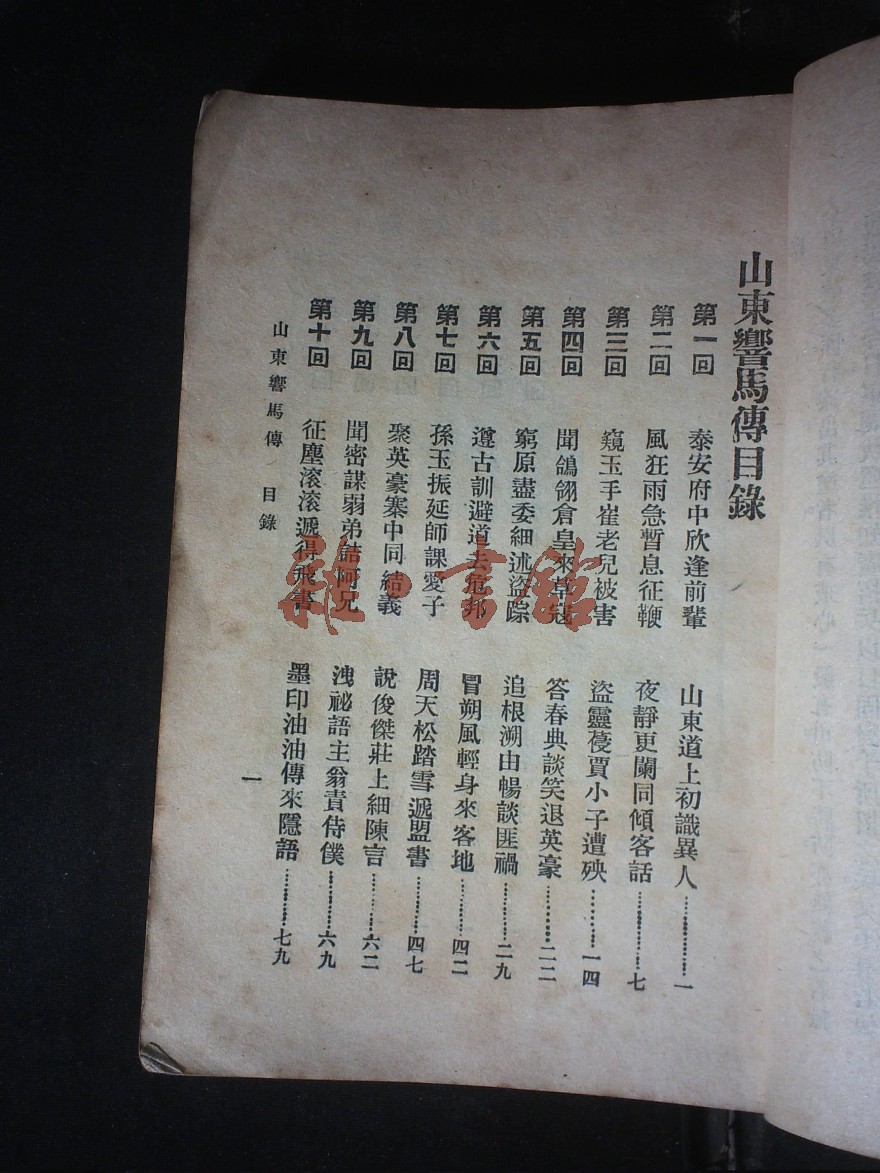 山東響馬傳目錄
第一回 泰安府中欣逢前輩 山東道上初識異人………一
第二回 風狂雨急暫息征鞭 夜靜更闌同傾客話………七
第三回 窺玉手崔老兒被害 盜靈薓賈小子遭殃………一四
第四回 聞鴿翎倉皇來草寇 答春典談笑退英豪………二二
第五回 窮原盡委細述盜踪 追根溯由暢談匪禍………二九
第六回 遵古訓避道去危邦 冒朔風輕身來客地………四二
第七回 孫玉振延師課愛子 周天松踏雪遞盟書………四七
第八回 聚英豪寨中同結義 說俊傑莊上細陳言………六二
第九回 聞密謀弱弟詰阿兄 洩祕語主翁責侍僕………六九
第十回 征塵滾滾遞得飛書 墨印油油傳來隱語………七九
山東響馬傳 目錄
一
雜·書館